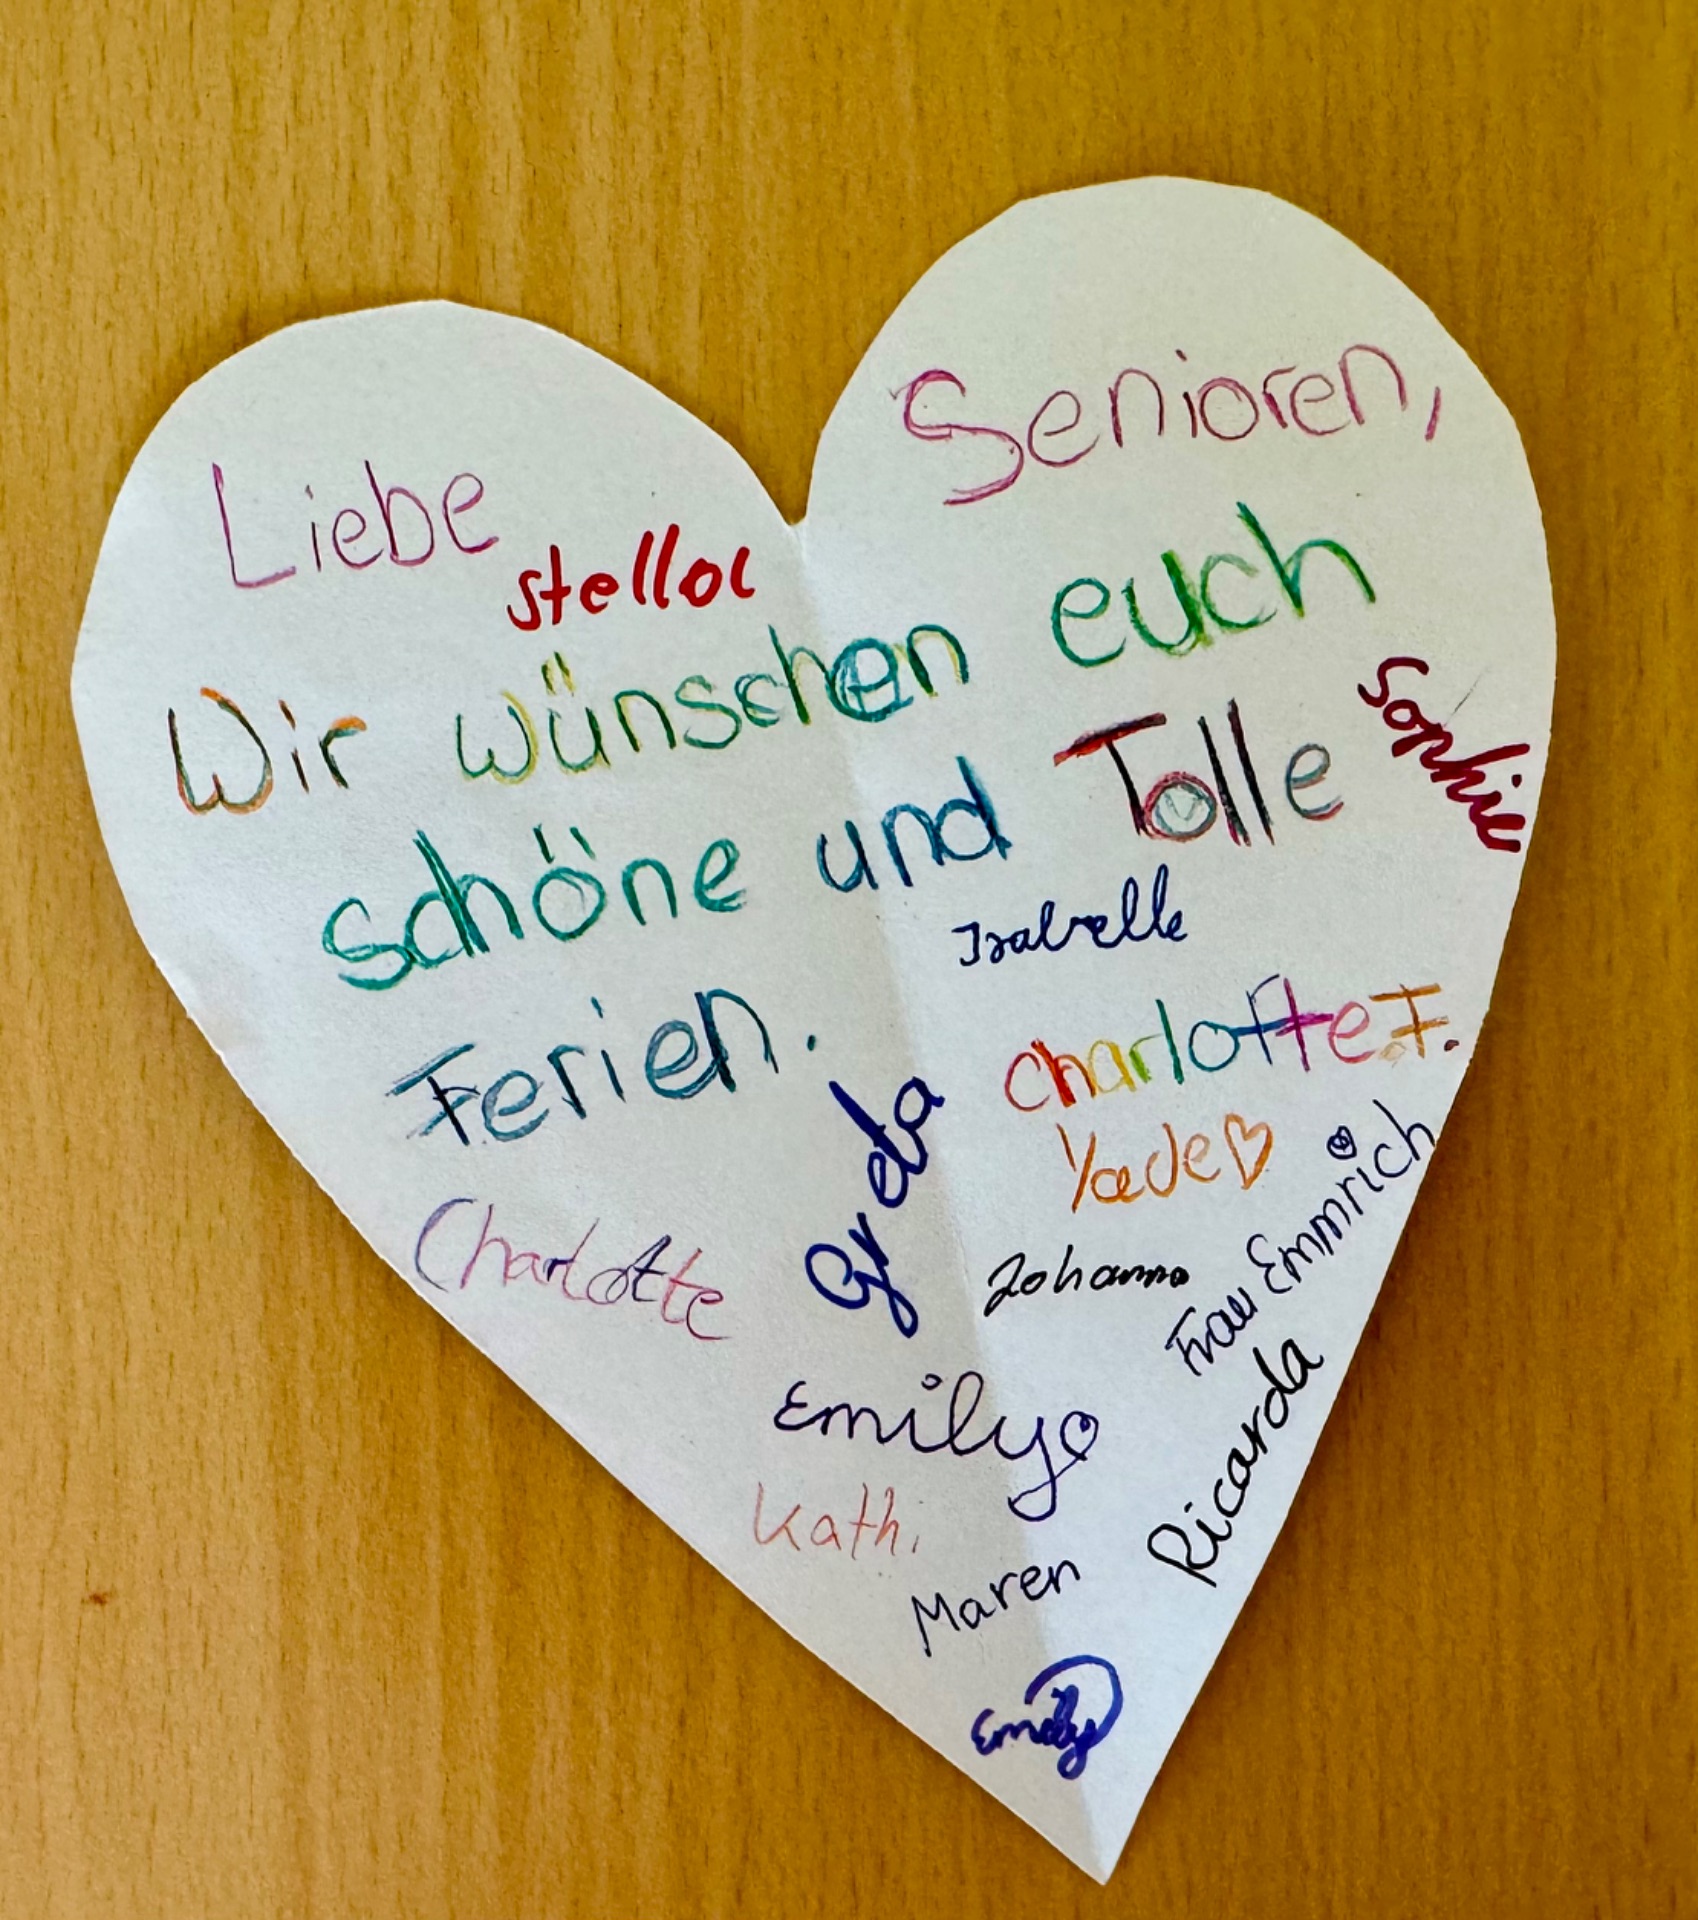 Liebe Senioren,
Stella
Wir wünschen euch
schöne und Tolle
Sophie
Ferien.
Isabelle
Charlotte.F.
Yade
Greta
Charlotte
Johanna
Frau Emmrich
Emily
Ricarda
Kath.
Maren
Emily